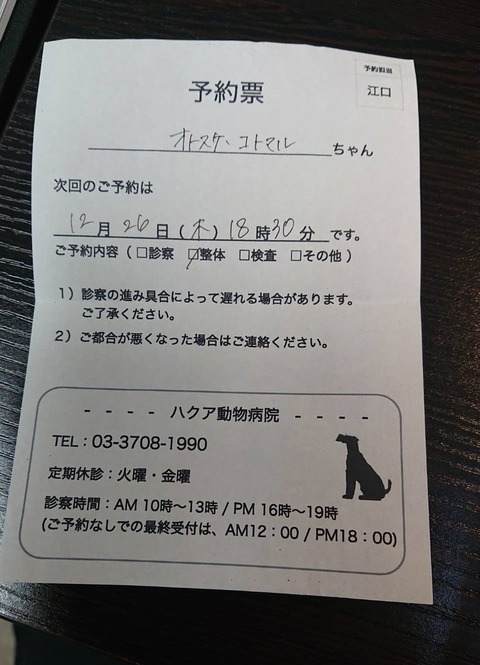 予約担当
江口
予約票
オトスケ・コトマル ちゃん
次回のご予約は
12月26日(木)18時30分 です。
ご予約内容（ □診察 ☑整体 □検査 □その他 ）
1）診察の進み具合によって遅れる場合があります。
ご了承ください。
2）ご都合が悪くなった場合はご連絡ください。
- - - - ハクア動物病院 - - - -
TEL：03-3708-1990
定期休診：火曜・金曜
診察時間：AM 10時～13時 / PM 16時～19時
(ご予約なしでの最終受付は、AM12：00 / PM18：00)